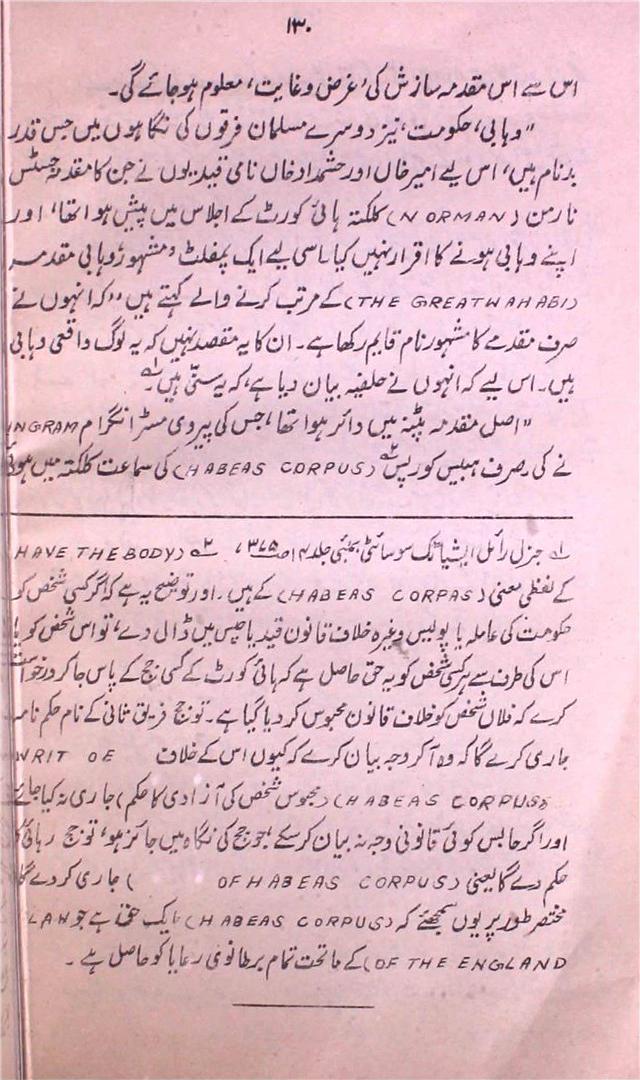 ۱۳۰
اس سے اس مقدمہ سازش کی، غرض و غایت، معلوم ہوجائے گی۔
"وہابی، حکومت، نیز دوسرے مسلمان فرقوں کی نگاہوں میں جس قدر
بدنام ہیں، اس لیے امیر خاں اور حشمداد خاں نامی قیدیوں نے جن کا مقدمہ جسٹس
نارمن (NORMAN) کلکتہ ہائی کورٹ کے اجلاس میں پیش ہوا تھا، اور
اپنے وہابی ہونے کا اقرار نہیں کیا۔ اسی لیے ایک پمفلٹ، مشہور وہابی مقدمہ
(THE GREAT WAHABI) کے مرتب کرنے والے کہتے ہیں "کہ انہوں نے
صرف مقدمے کا مشہور نام قایم رکھا ہے۔ ان کا یہ مقصد نہیں کہ یہ لوگ واقعی وہابی
ہیں۔ اس لیے کہ انہوں نے حلفیہ بیان دیا ہے، کہ یہ سنّی ہیں ۱؎
"اصل مقدمہ پٹنہ میں دائر ہوا تھا، جس کی پیروی مسٹر انگرام INGRAM
نے کی۔ صرف ہیبیس کورپس ۲؎ (HABEAS CORPUS) کی سماعت کلکتہ میں ہوئی
۱؎ جرنل رائل ایشیاٹک سوسائٹی بمبئی جلد ۱۴ ص ۳۷۵، ۲؎ (HAVE THE BODY
کے لفظی معنی (HABEAS CORPAS) کے ہیں۔ اور توضیح یہ ہے کہ اگر کسی شخص کو
حکومت کی عاملہ یا پولیس وغیرہ خلاف قانون قید یا حبس میں ڈال دے، تو اس شخص کو یا
اس کی طرف سے ہر کسی شخص کو یہ حق حاصل ہے کہ ہائی کورٹ کے کسی جج کے پاس جا کر درخواست
کرے کہ فلاں شخص کو خلاف قانون محبوس کر دیا گیا ہے۔ تو جج فریق ثانی کے نام حکم نامہ
جاری کرے گا کہ وہ آکر وجہ بیان کرے کہ کیوں اس کے خلاف WRIT OE
HABEAS CORPUS) (محبوس شخص کی آزادی کا حکم) جاری نہ کیا جائے
اور اگر حابس کوئی قانونی وجہ نہ بیان کر سکے، جو جج کی نگاہ میں جائز ہو، تو جج رہائی کا
حکم دے گا یعنی (OF HABEAS CORPUS ) جاری کر دے گا
مختصر طور پر یوں سمجھئے کہ (HABEAS CORPUS) ایک حق ہے جو LAW
OF THE ENGLAND) کے ماتحت تمام برطانوی رعایا کو حاصل ہے۔